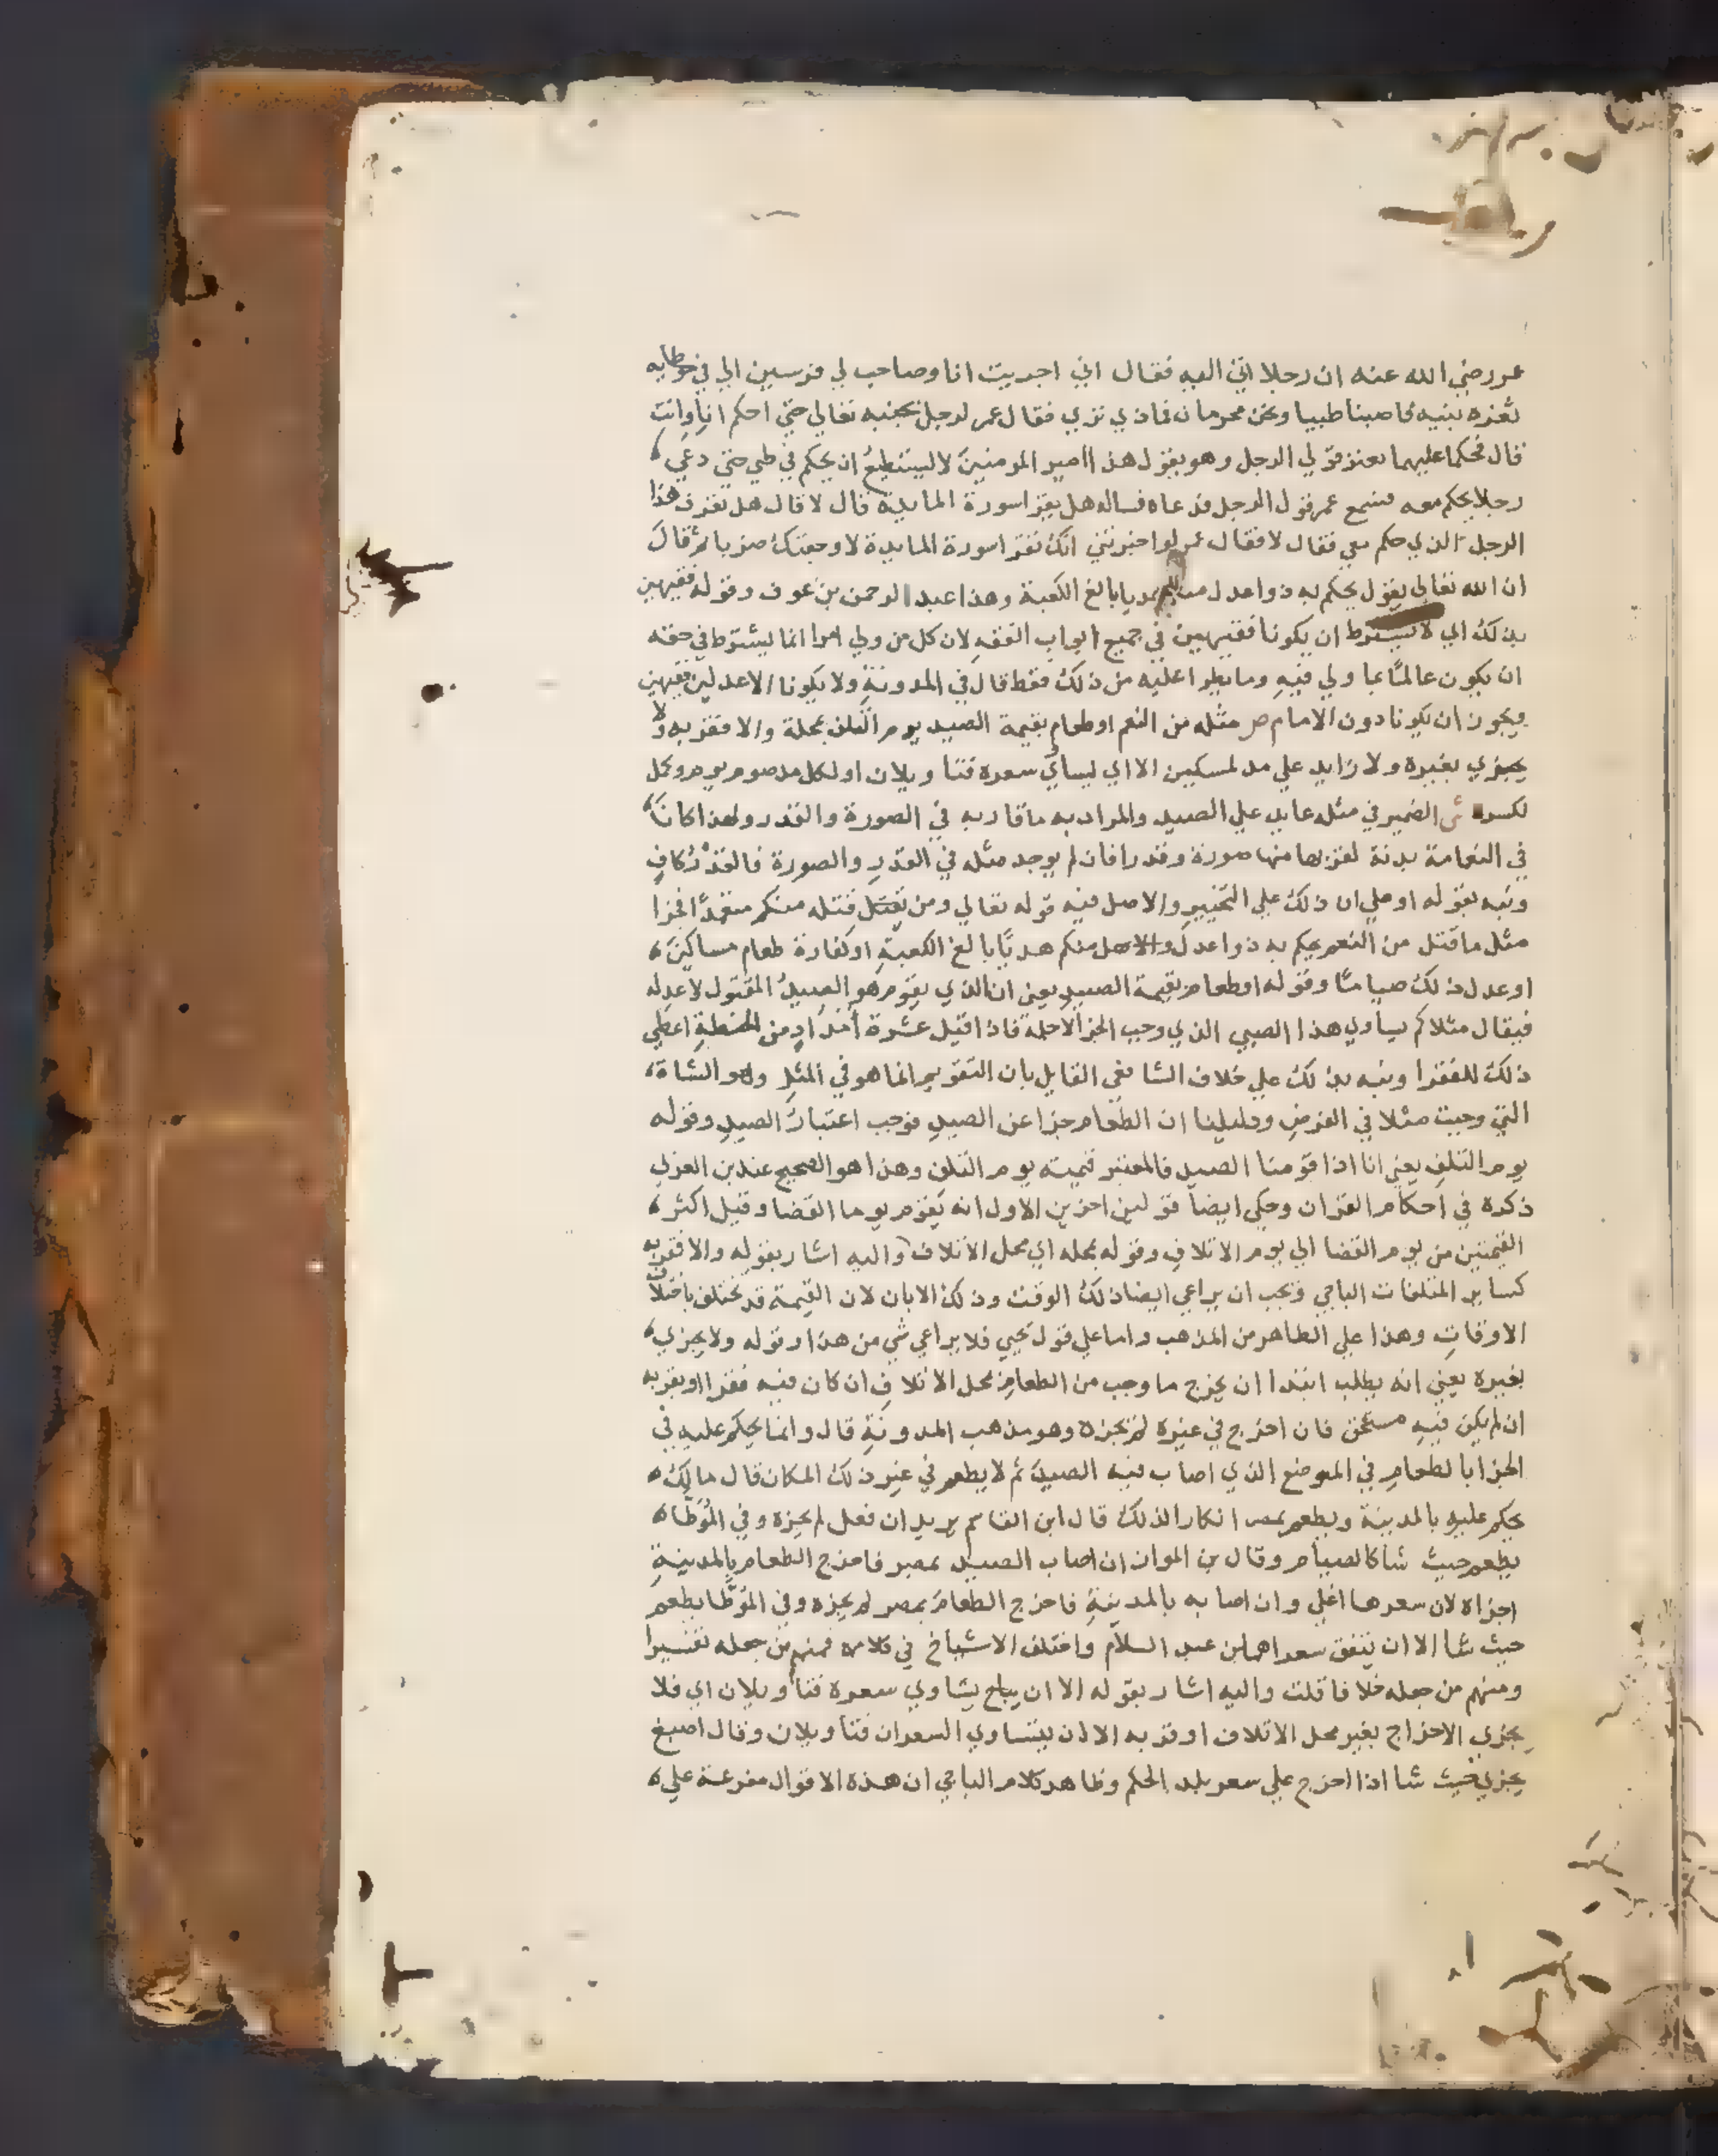 عمر رضي الله عنه ان رجلا اتي اليه فقال اني اجريت انا وصاحب لي فرسين الي في
ثغرة ثنيه فاصبنا ظبيا ونحن محرمان فماذي تري فقال عمر لرجل بجنبه تعالي حتي احكم انا وانت
قال فحكما عليهما بعنز فولي الرجل وهو يقول هذا امير المومنين لا ليستطيع ان يحكم في ظبي حتي دعي
رجلا يحكم معه فسمع عمر قول الرجل فدعاه فساله هل يقرا سورة المايدة قال لا قال هل تعرف هذا
الرجل الذي حكم معي فقال لا فقال عمر لو اخبرتني انك تقرا سورة المايدة لاوجعتك ضربا ثم قال
ان الله تعالي يقول يحكم به ذوا عدل منكم هديا بالغ الكعبة وهذا عبد الرحمن بن عوف وقوله فقيهين
بذلك اي لا يشترط ان يكونا فقيهين في جميع ابواب الفقه لان كل من ولي امرا انما ليشترط في حقه
ان يكون عالما بما ولي فيه وما يطرا عليه من ذلك فقط قال في المدونة ولا يكونا الا عدلين فقيهين
ويجوز ان يكونا دون الامام ص مثله من النعم او طعام بقيمة الصيد يوم التلف بمحلة والا فقربه ولا
يجزي بغيرة ولا زايد علي مد لمسكين الا اي ليساوي سعره فتاويلان او لكل مد صوم يوم وكمل
لكسره ش الضمير في مثله عايد علي الصيد والمراد به ما قاربه في الصورة والقدر ولهذا كان
في النعامة بدنة لقربها منها صورة وقدرا فان لم يوجد مثله في القدر والصورة فالقدر كاف
ونبه بقوله او علي ان ذلك علي التخيير والاصل فيه قوله تعالي ومن يقتل قتله منكم متعمدا فجزا
مثل ما قتل من النعم يحكم به ذوا عدل والاصل منكم هديا بالغ الكعبة او كفارة طعام مساكين
او عدل ذلك صياما وقوله او طعام بقيمة الصيد يعني ان الذي يقوم هو الصيد المقتول لا عدله
فيقال مثلا كم يساوي هذا الصبي الذي وجب الجزا لاجله فاذا قيل عشرة امداد من الحنطة اعطي
ذلك للفقرا ونبه بذلك علي خلاف الشافعي القايل بان التقويم انما هو في المثل وهو الشاة
التي وجبت مثلا في الفرض ودليلنا ان الطعام جزا عن الصيد فوجب اعتبار الصيد وقوله
يوم التلف يعني انا اذا قومنا الصيد فالمعتبر قيمته يوم التلف وهذا هو الصحيح عند بن العربي
ذكره في احكام القران وحكي ايضا قولين اخرين الاول انه يقوم يوما القضا وقيل اكثر
القيمتين من يوم القضا الي يوم الاتلاف وقوله بمحله اي محل الاتلاف واليه اشار بقوله والا فقربه
كساير المتلفات الباجي ويجب ان يراعي ايضا ذلك الوقت وذلك الابان لان القيمة قد تختلف باختلاف
الاوقات وهذا علي الظاهر من المذهب واما علي قول يحيي فلا يراعي شي من هذا وقوله ولا يجزي
بغيره يعني انه يطلب ابتدا ان يخرج ما وجب من الطعام بمحل الاتلاف ان كان فيه فقرا او بقربه
ان لم يكن فيه مستحق فان اخرج في غيره لم يجزه وهو مذهب المدونة قال وانما يحكم عليه في
الجزا بالطعام في الموضع الذي اصاب فيه الصيد ثم لا يطعم في غير ذلك المكان قال مالك
يحكم عليه بالمدينة ويطعم بمصر انكارا لذلك قال ابن القاسم يريد ان فعل لم يجزه وفي الموطا
يطعم حيث شا كالصيام وقال بن المواز ان اصاب الصيد بمصر فاخرج الطعام بالمدينة
اجزاه لان سعرها اغلي وان اصابه بالمدينة فاخرج الطعام بمصر لم يجزه وفي الموطا يطعم
حيث شا الا ان يتفق سعراهما بن عبد السلام واختلف الاشياخ في كلامه فمنهم من جعله تفسيرا
ومنهم من جعله خلافا قلت واليه اشار بقوله الا ان يساوي سعره فتاويلان اي فلا
يجزي الاخراج بغير محل الاتلاف او قربه الا ان يتساوي السعران فتاويلان وقال اصبغ
يجزي حيث شا اذا اخرج علي سعر بلد الحكم وظاهر كلام الباجي ان هذه الاقوال مفرعة علي